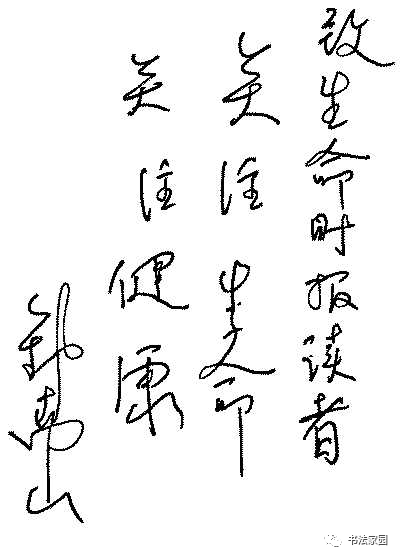 致生命时报读者
关注生命
关注健康
钟南山
书法家园